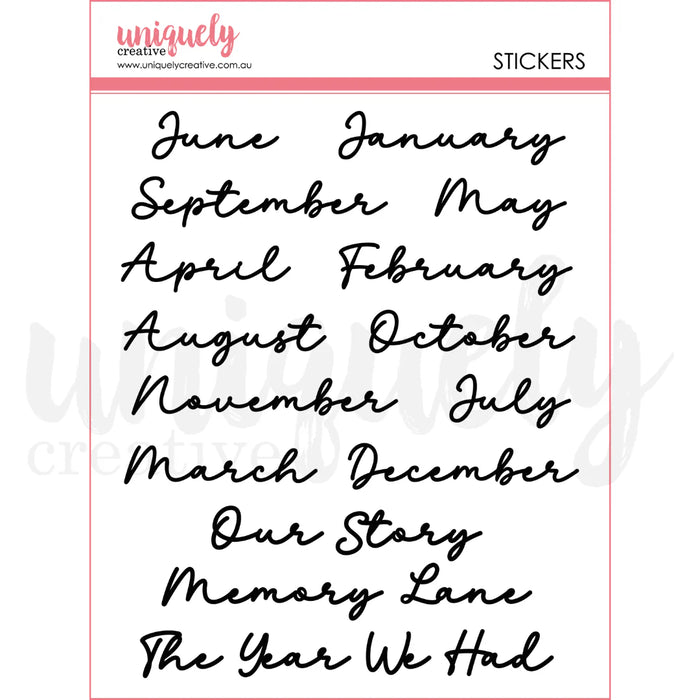 uniquely
creative
www.uniquelycreative.com.au
STICKERS
June January
September May
April February
August October
November July
March December
Our Story
Memory Lane
The Year We Had
uniquely
creative